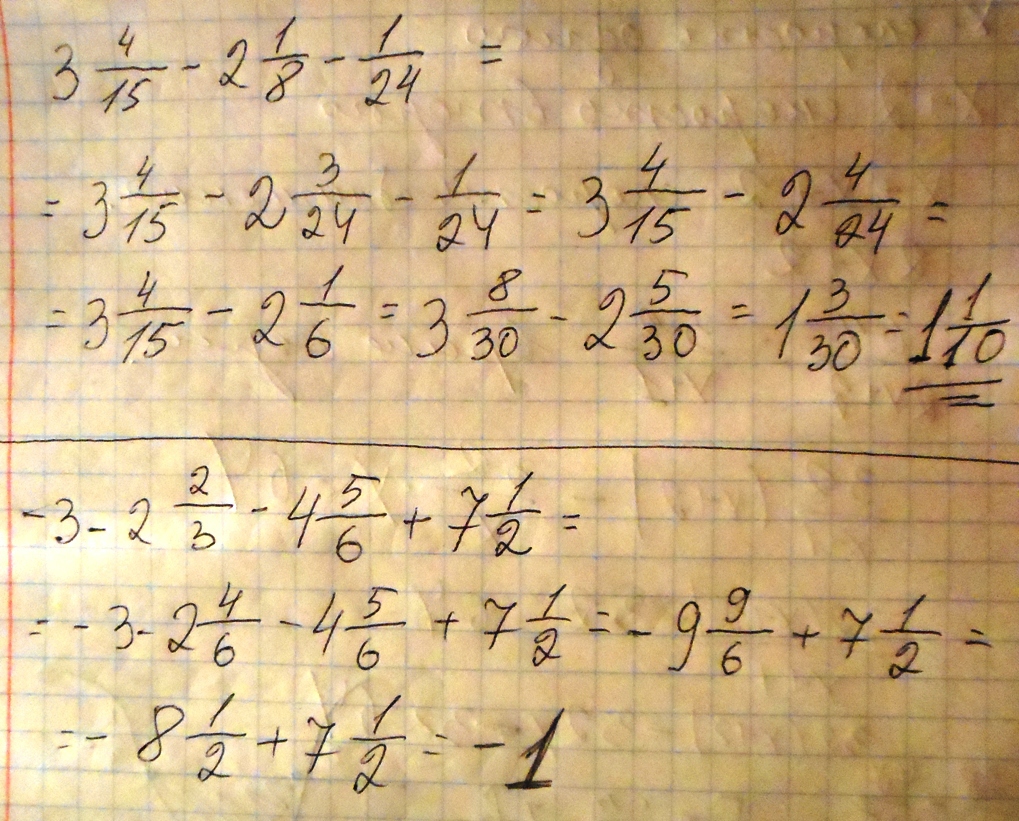 3 4/15 - 2 1/8 - 1/24 =
= 3 4/15 - 2 3/24 - 1/24 = 3 4/15 - 2 4/24 =
= 3 4/15 - 2 1/6 = 3 8/30 - 2 5/30 = 1 3/30 = 1 1/10
-3 - 2 2/3 - 4 5/6 + 7 1/2 =
= -3 - 2 4/6 - 4 5/6 + 7 1/2 = -9 9/6 + 7 1/2 =
= -8 1/2 + 7 1/2 = -1